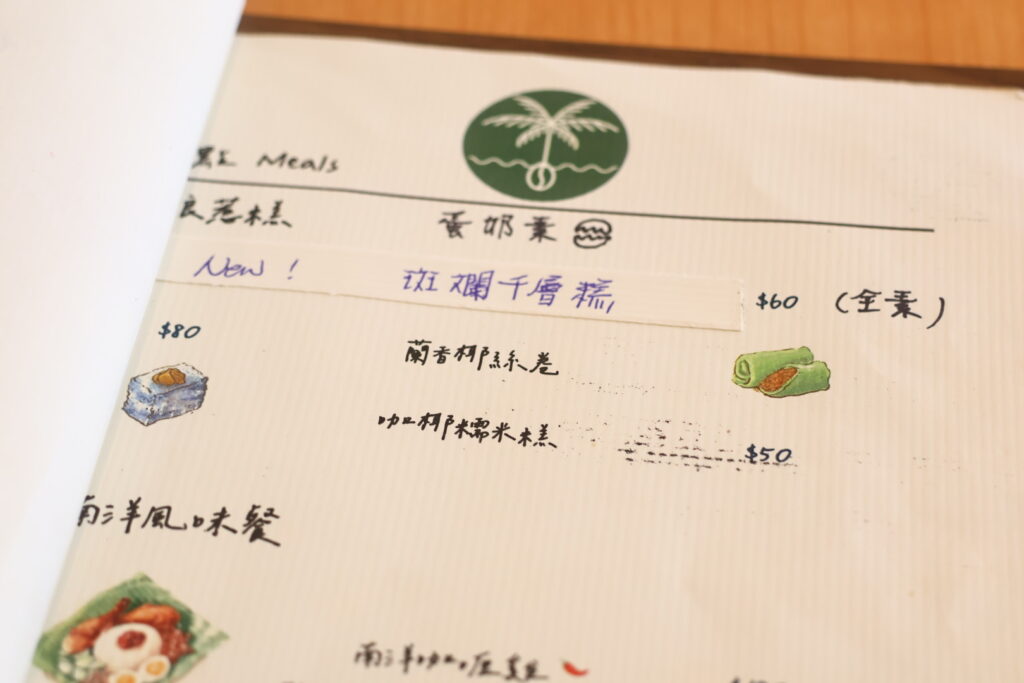 點 Meals
浪卷糕 蛋奶素
New! 斑斕千層糕 $60 (全素)
$80
蘭香椰絲卷
咖椰糯米糕 $50
南洋風味餐
南洋咖哩雞